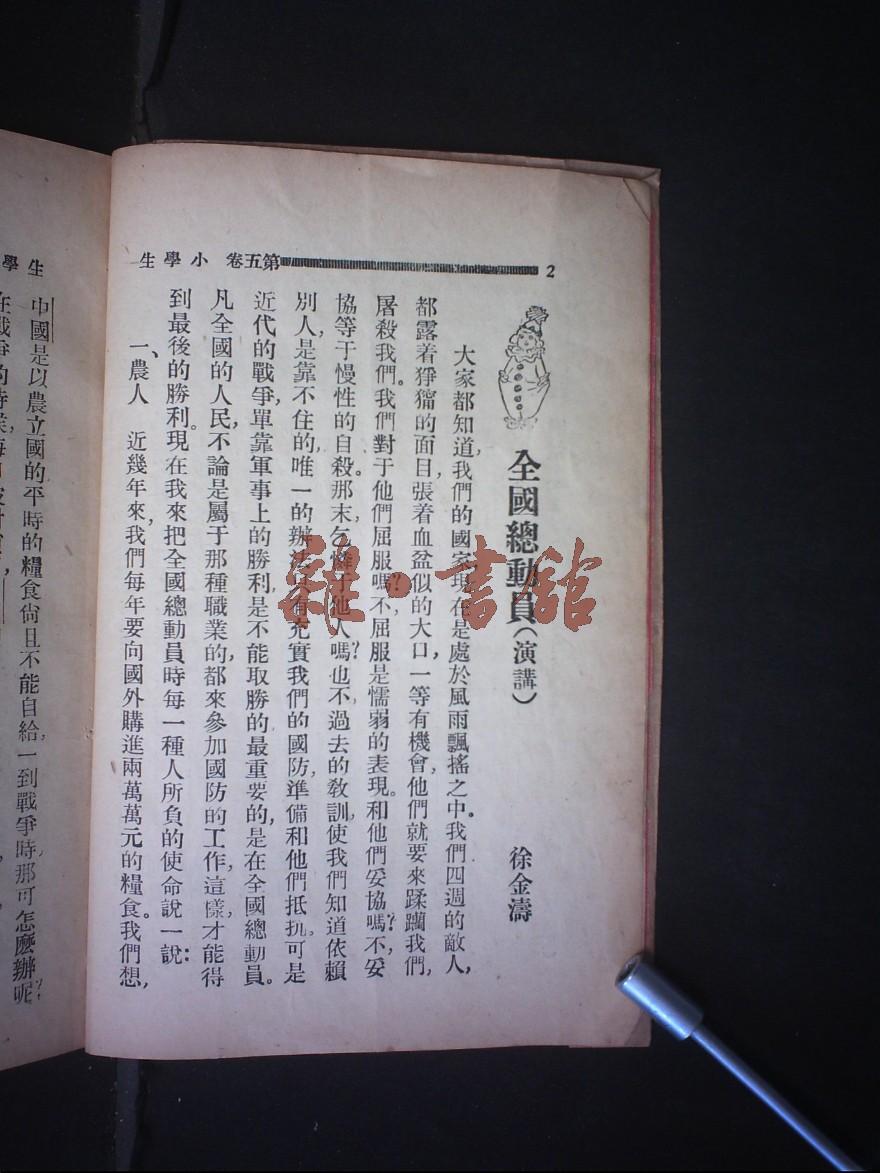 2
第五卷 小學生
全國總動員(演講)
徐金濤
大家都知道,我們的國家現在是處於風雨飄搖之中。我們四週的敵人,
都露着猙獰的面目,張着血盆似的大口,一等有機會,他們就要來蹂躪我們,
屠殺我們。我們對于他們屈服嗎?不,屈服是懦弱的表現。和他們妥協嗎?不,妥
協等于慢性的自殺。那末乞憐于他人嗎?也不,過去的教訓,使我們知道依賴
別人,是靠不住的,唯一的辦法,只有充實我們的國防,準備和他們抵抗,可是
近代的戰爭,單靠軍事上的勝利,是不能取勝的,最重要的,是在全國總動員。
凡全國的人民,不論是屬于那種職業的,都來參加國防的工作,這樣才能得
到最後的勝利。現在我來把全國總動員時每一種人所負的使命說一說:
一、農人 近幾年來,我們每年要向國外購進兩萬萬元的糧食。我們想,
學生
中國是以農立國的,平時的糧食尙且不能自給,一到戰爭時那可怎麽辦呢?
雜·書館